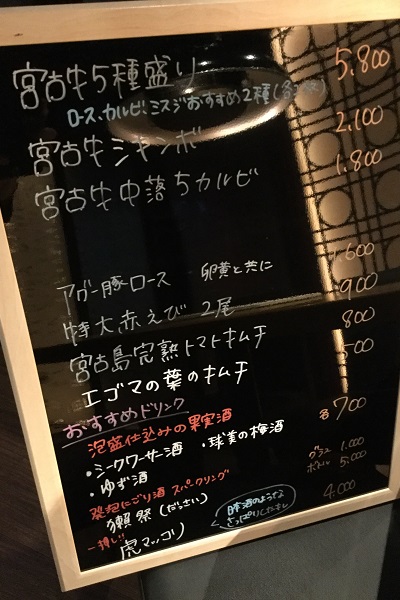 宮古牛5種盛り 5,800
ロース、カルビ、ミスジおすすめ2種(各3枚)
宮古牛ミキンボ 2,100
宮古牛中落ちカルビ 1,800
アグー豚ロース 卵黄と共に 1,600
特大赤えび 2尾 900
宮古島完熟トマトキムチ 800
エゴマの葉のキムチ 500
おすすめドリンク
泡盛仕込みの果実酒 各700
・シークワーサー酒 ・球美の梅酒
・ゆず酒
発泡にごり酒 スパークリング グラス 1,000
獺祭(だっさい) ボトル 5,000
一押し!! 虎マッコリ 4,000
日本酒のような
さっぱりしたキレ